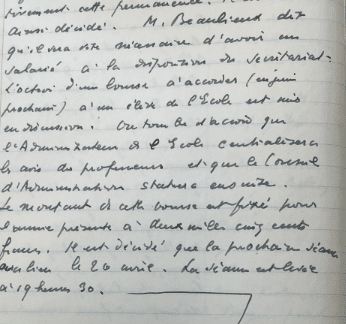 cette permanence.
Ainsi décidé. M. Beaulieux dit
qu'il sera nécessaire d'avoir un
salarié à la disposition du secrétariat.
L'octroi d'une bourse à accorder (en juin
prochain) à un élève de l'Ecole est mis
en discussion. On tombe d'accord que
l'Administrateur de l'Ecole centralisera
les avis des professeurs et que le Conseil
d'Administration statuera ensuite.
Le montant de cette bourse est fixé pour
l'année présente à deux mille cinq cents
francs. Il est décidé que la prochaine séance
aura lieu le 26 avril. La séance est levée
à 19 heures 30.